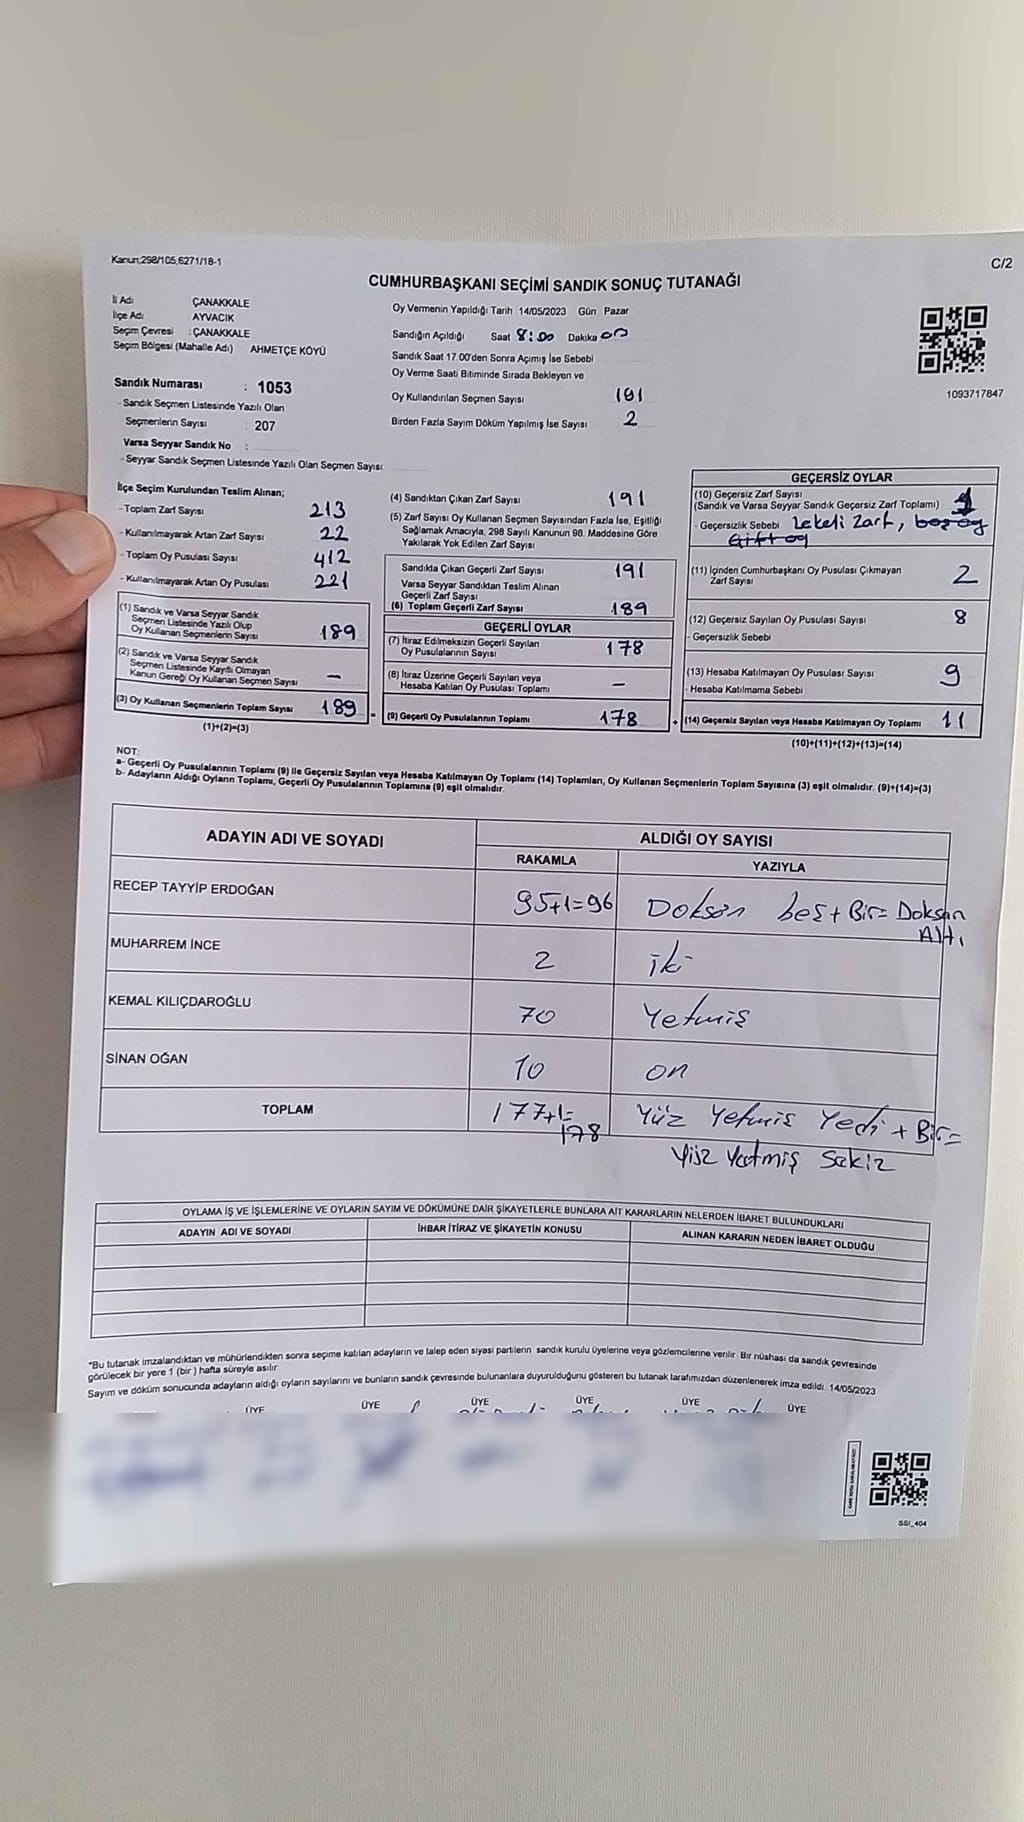 Kanun;298/105,6271/18-1
C/2
CUMHURBAŞKANI SEÇİMİ SANDIK SONUÇ TUTANAĞI
İl Adı ÇANAKKALE
İlçe Adı AYVACIK
Seçim Çevresi : ÇANAKKALE
Seçim Bölgesi (Mahalle Adı) AHMETÇE KÖYÜ
Sandık Numarası : 1053
- Sandık Seçmen Listesinde Yazılı Olan
Seçmenlerin Sayısı : 207
Varsa Seyyar Sandık No :
- Seyyar Sandık Seçmen Listesinde Yazılı Olan Seçmen Sayısı
Oy Vermenin Yapıldığı Tarih 14/05/2023 Gün Pazar
Sandığın Açıldığı Saat 8:00 Dakika 00
Sandık Saat 17.00'den Sonra Açımış İse Sebebi
Oy Verme Saati Bitiminde Sırada Bekleyen ve
Oy Kullandırılan Seçmen Sayısı 191
Birden Fazla Sayım Döküm Yapılmış İse Sayısı 2
1093717847
İlçe Seçim Kurulundan Teslim Alınan;
- Toplam Zarf Sayısı 213
- Kullanılmayarak Artan Zarf Sayısı 22
- Toplam Oy Pusulası Sayısı 412
- Kullanılmayarak Artan Oy Pusulası 221
(1) Sandık ve Varsa Seyyar Sandık
Seçmen Listesinde Yazılı Olup
Oy Kullanan Seçmenlerin Sayısı 189
(2) Sandık ve Varsa Seyyar Sandık
Seçmen Listesinde Kayıtlı Olmayan
Kanun Gereği Oy Kullanan Seçmen Sayısı –
(3) Oy Kullanan Seçmenlerin Toplam Sayısı 189 =
(1)+(2)=(3)
(4) Sandıktan Çıkan Zarf Sayısı 191
(5) Zarf Sayısı Oy Kullanan Seçmen Sayısından Fazla İse, Eşitliği
Sağlamak Amacıyla, 298 Sayılı Kanunun 98. Maddesine Göre
Yakılarak Yok Edilen Zarf Sayısı
Sandıkta Çıkan Geçerli Zarf Sayısı 191
Varsa Seyyar Sandıktan Teslim Alınan
Geçerli Zarf Sayısı
(6) Toplam Geçerli Zarf Sayısı 189
GEÇERLİ OYLAR
(7) İtiraz Edilmeksizin Geçerli Sayılan
Oy Pusulalarının Sayısı 178
(8) İtiraz Üzerine Geçerli Sayılan veya
Hesaba Katılan Oy Pusulası Toplamı –
(9) Geçerli Oy Pusulalarının Toplamı 178 +
GEÇERSİZ OYLAR
(10) Geçersiz Zarf Sayısı
(Sandık ve Varsa Seyyar Sandık Geçersiz Zarf Toplamı)
- Geçersizlik Sebebi Lekeli Zarf, boş oy
Çift oy
(11) İçinden Cumhurbaşkanı Oy Pusulası Çıkmayan
Zarf Sayısı 2
(12) Geçersiz Sayılan Oy Pusulası Sayısı 8
- Geçersizlik Sebebi
(13) Hesaba Katılmayan Oy Pusulası Sayısı 9
- Hesaba Katılmama Sebebi
(14) Geçersiz Sayılan veya Hesaba Katılmayan Oy Toplamı 11
(10)+(11)+(12)+(13)=(14)
NOT:
a- Geçerli Oy Pusulalarının Toplamı (9) ile Geçersiz Sayılan veya Hesaba Katılmayan Oy Toplamı (14) Toplamları, Oy Kullanan Seçmenlerin Toplam Sayısına (3) eşit olmalıdır. (9)+(14)=(3)
b- Adayların Aldığı Oyların Toplamı, Geçerli Oy Pusulalarının Toplamına (9) eşit olmalıdır.
ADAYIN ADI VE SOYADI
ALDIĞI OY SAYISI
RAKAMLA YAZIYLA
RECEP TAYYİP ERDOĞAN 95+1=96 Doksan beş + Bir= Doksan
Altı
MUHARREM İNCE 2 iki
KEMAL KILIÇDAROĞLU 70 Yetmiş
SİNAN OĞAN 10 on
TOPLAM 177+1= Yüz Yetmiş Yedi + Bir=
178 Yüz Yetmiş Sekiz
OYLAMA İŞ VE İŞLEMLERİNE VE OYLARIN SAYIM VE DÖKÜMÜNE DAİR ŞİKAYETLERLE BUNLARA AİT KARARLARIN NELERDEN İBARET BULUNDUKLARI
ADAYIN ADI VE SOYADI İHBAR İTİRAZ VE ŞİKAYETİN KONUSU ALINAN KARARIN NEDEN İBARET OLDUĞU
*Bu tutanak imzalandıktan ve mühürlendikten sonra seçime katılan adayların ve talep eden siyasi partilerin sandık kurulu üyelerine veya gözlemcilerine verilir. Bir nüshası da sandık çevresinde
görülecek bir yere 1 (bir) hafta süreyle asılır.
Sayım ve döküm sonucunda adayların aldığı oyların sayılarını ve bunların sandık çevresinde bulunanlara duyurulduğunu gösteren bu tutanak tarafımızdan düzenlenerek imza edildi. 14/05/2023
ÜYE ÜYE ÜYE ÜYE ÜYE ÜYE
SSI_404